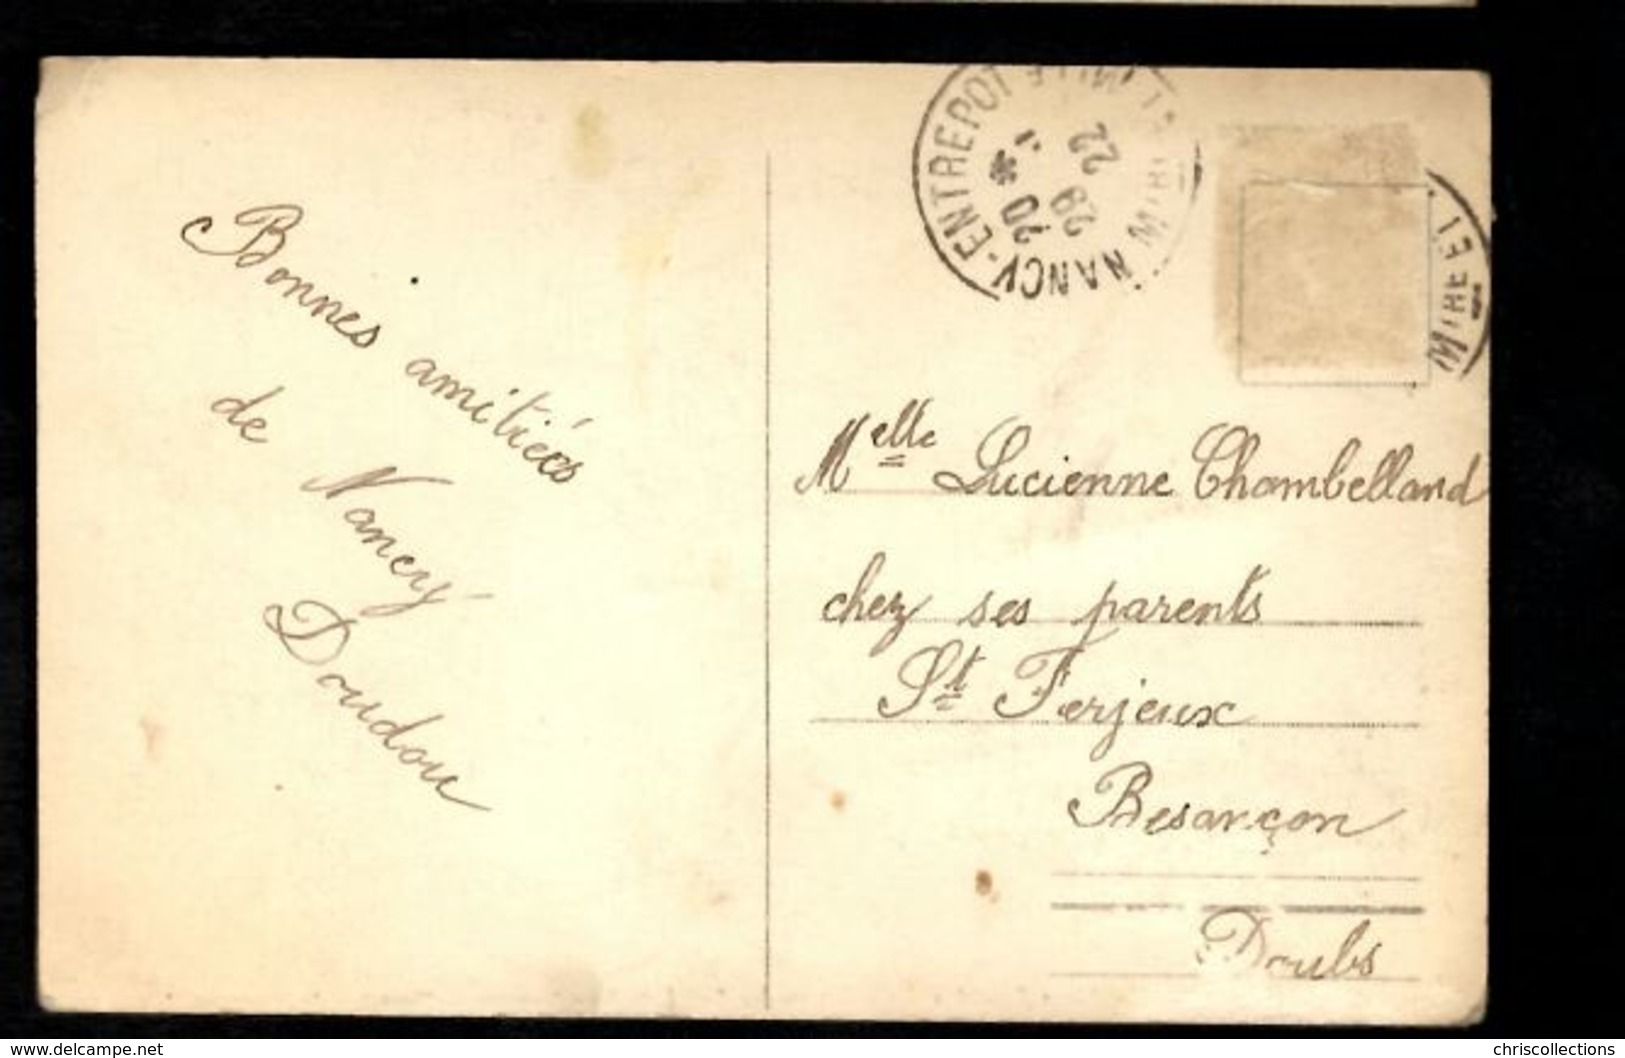 Bonnes amitiées
de Nancy
Doudou
NANCY-ENTREPOT
20
29
22
Melle Lucienne Chambelland
chez ses parents
St Ferjeux
Besançon
Doubs
www.delcampe.net
chriscollections